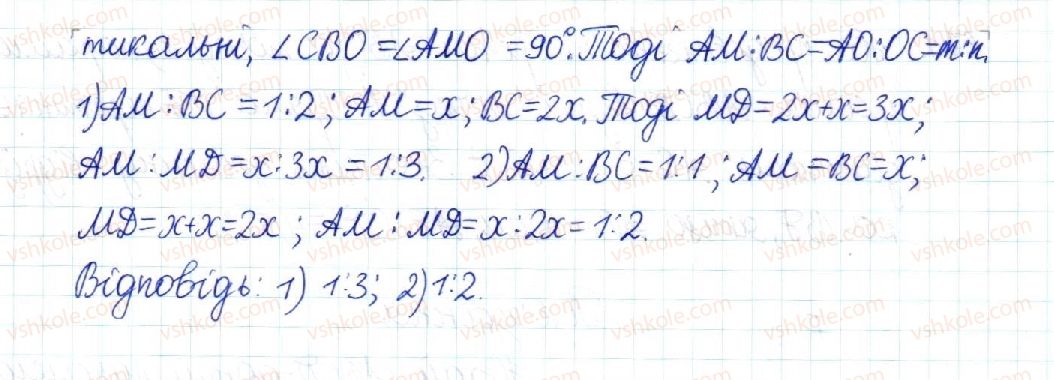 тикальні, ∠CBO = ∠AMO = 90°. Тоді AM:BC=AO:OC=m:n.
1) AM:BC = 1:2; AM=x; BC=2x. Тоді MD=2x+x=3x;
AM:MD=x:3x = 1:3. 2) AM:BC=1:1; AM=BC=x;
MD=x+x=2x; AM:MD=x:2x=1:2.
Відповідь: 1) 1:3; 2) 1:2.